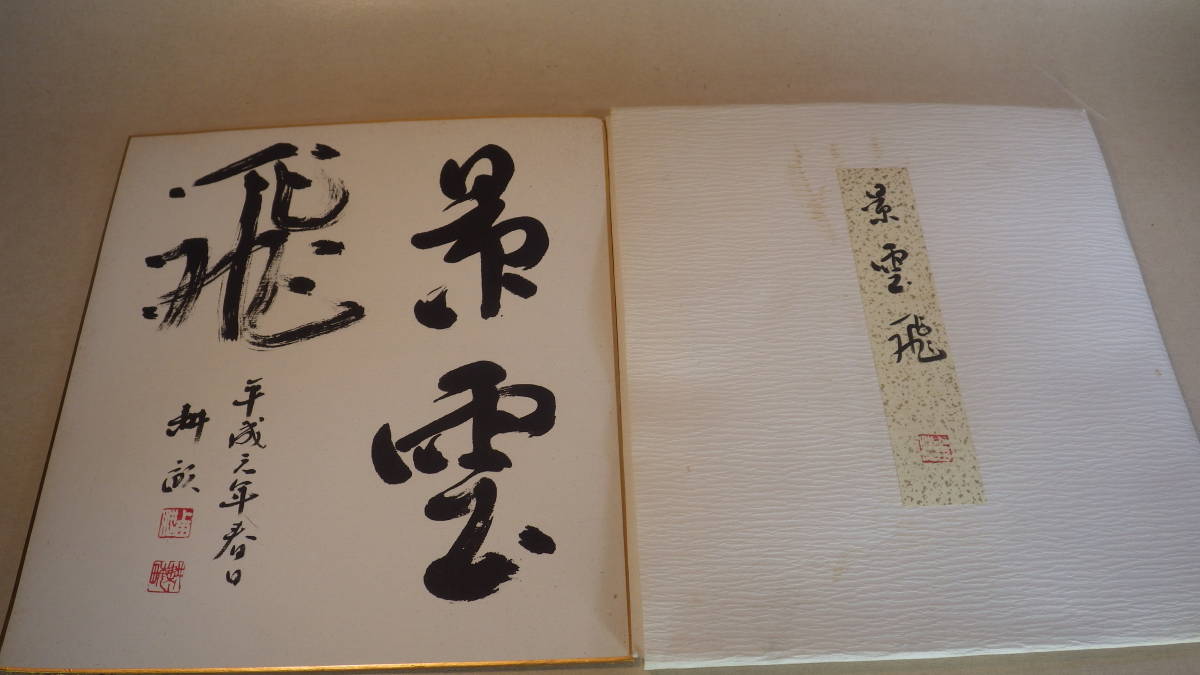 景雲
飛
平成元年春日
景雲飛